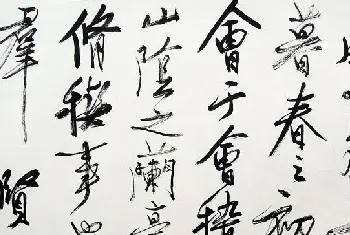 暮春之初
會于會稽
山陰之蘭亭
脩稧事也
羣賢